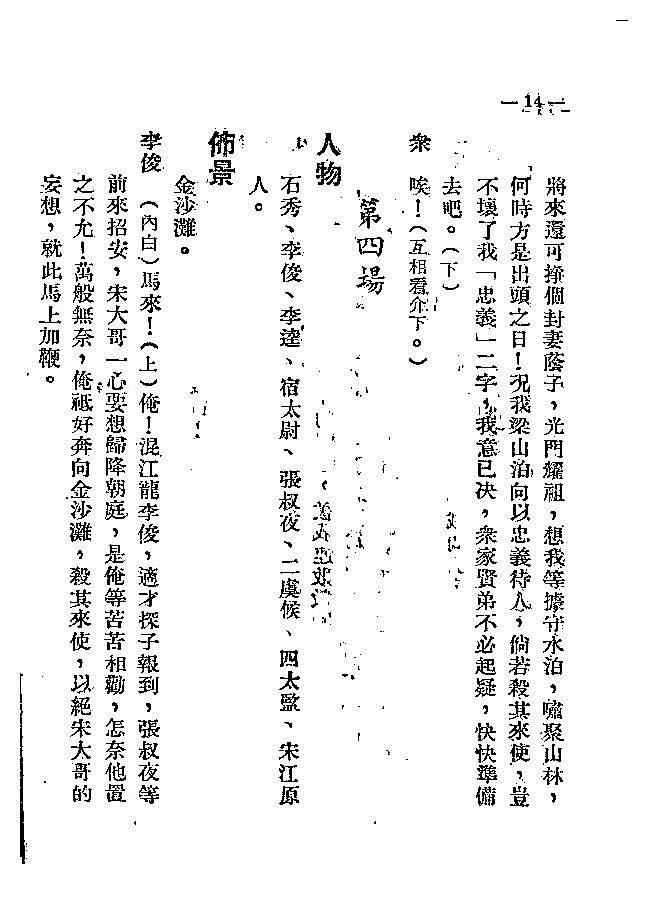 —14—
將來還可掙個封妻蔭子，光門耀祖，想我等據守水泊，嘯聚山林，
何時方是出頭之日！況我梁山泊向以忠義待人，倘若殺其來使，豈
不壞了我「忠義」二字，我意已決，衆家賢弟不必起疑，快快準備
去吧。（下）
衆 唉！（互相看介下。）
第四場
人物
石秀、李俊、李逵、宿太尉、張叔夜、二虞候、四太監、宋江原
人。
佈景
金沙灘。
李俊 （內白）馬來！（上）俺！混江龍李俊，適才探子報到，張叔夜等
前來招安，宋大哥一心要想歸降朝庭，是俺等苦苦相勸，怎奈他置
之不允！萬般無奈，俺祗好奔向金沙灘，殺其來使，以絕宋大哥的
妄想，就此馬上加鞭。